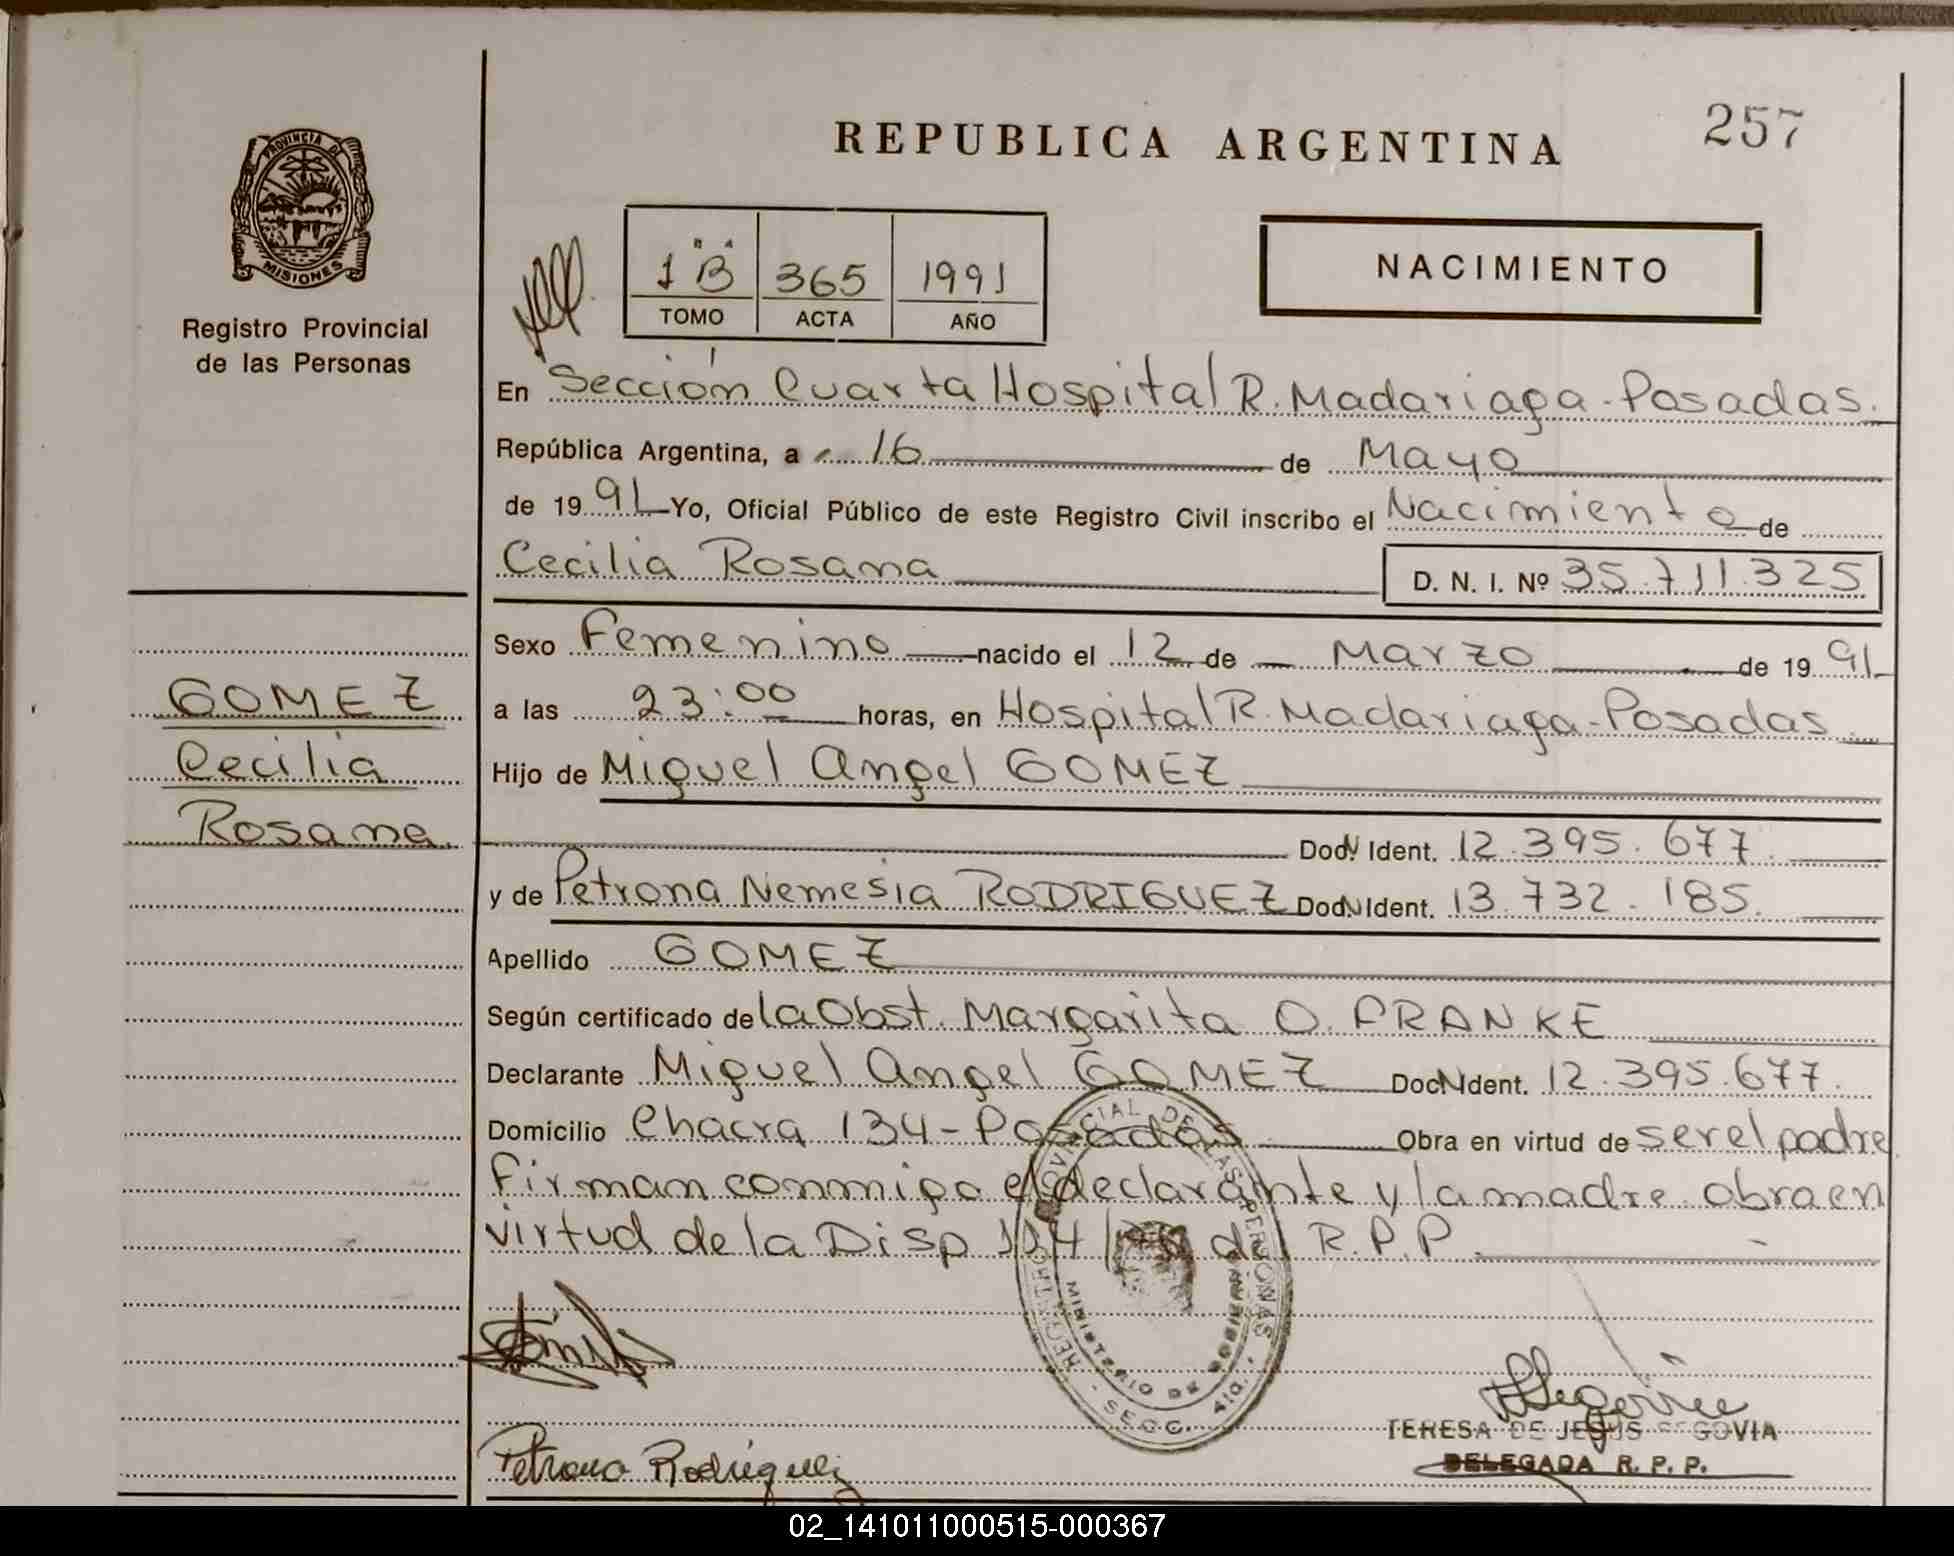 257
REPUBLICA ARGENTINA
PROVINCIA DE
MISIONES
Registro Provincial
de las Personas
1 "B" 365 1991
TOMO ACTA AÑO
NACIMIENTO
En Sección Cuarta Hospital R. Madariaga - Posadas.
República Argentina, a 16 de Mayo
de 1991 Yo, Oficial Público de este Registro Civil inscribo el Nacimiento de
Cecilia Rosana D. N. I. Nº 35.711.325
Sexo Femenino nacido el 12 de Marzo de 1991
a las 23:00 horas, en Hospital R. Madariaga - Posadas
Hijo de Miguel Angel GOMEZ
Doc. N Ident. 12.395.677
y de Petrona Nemesia RODRIGUEZ Doc. N Ident. 13.732.185.
Apellido GOMEZ
Según certificado de la Obst. Margarita O. FRANKE
Declarante Miguel Angel GOMEZ Doc N Ident. 12.395.677.
Domicilio Chacra 134 - Posadas Obra en virtud de ser el padre
Firman conmigo el declarante y la madre. obra en
virtud de la Disp del R.P.P.
GOMEZ
Cecilia
Rosana
REGISTRO PROVINCIAL DE LAS PERSONAS
MINISTERIO DE GOBIERNO
SECC. 4ta.
Petrona Rodriguez
TERESA DE JESUS SEGOVIA
DELEGADA R. P. P.
02_141011000515-000367